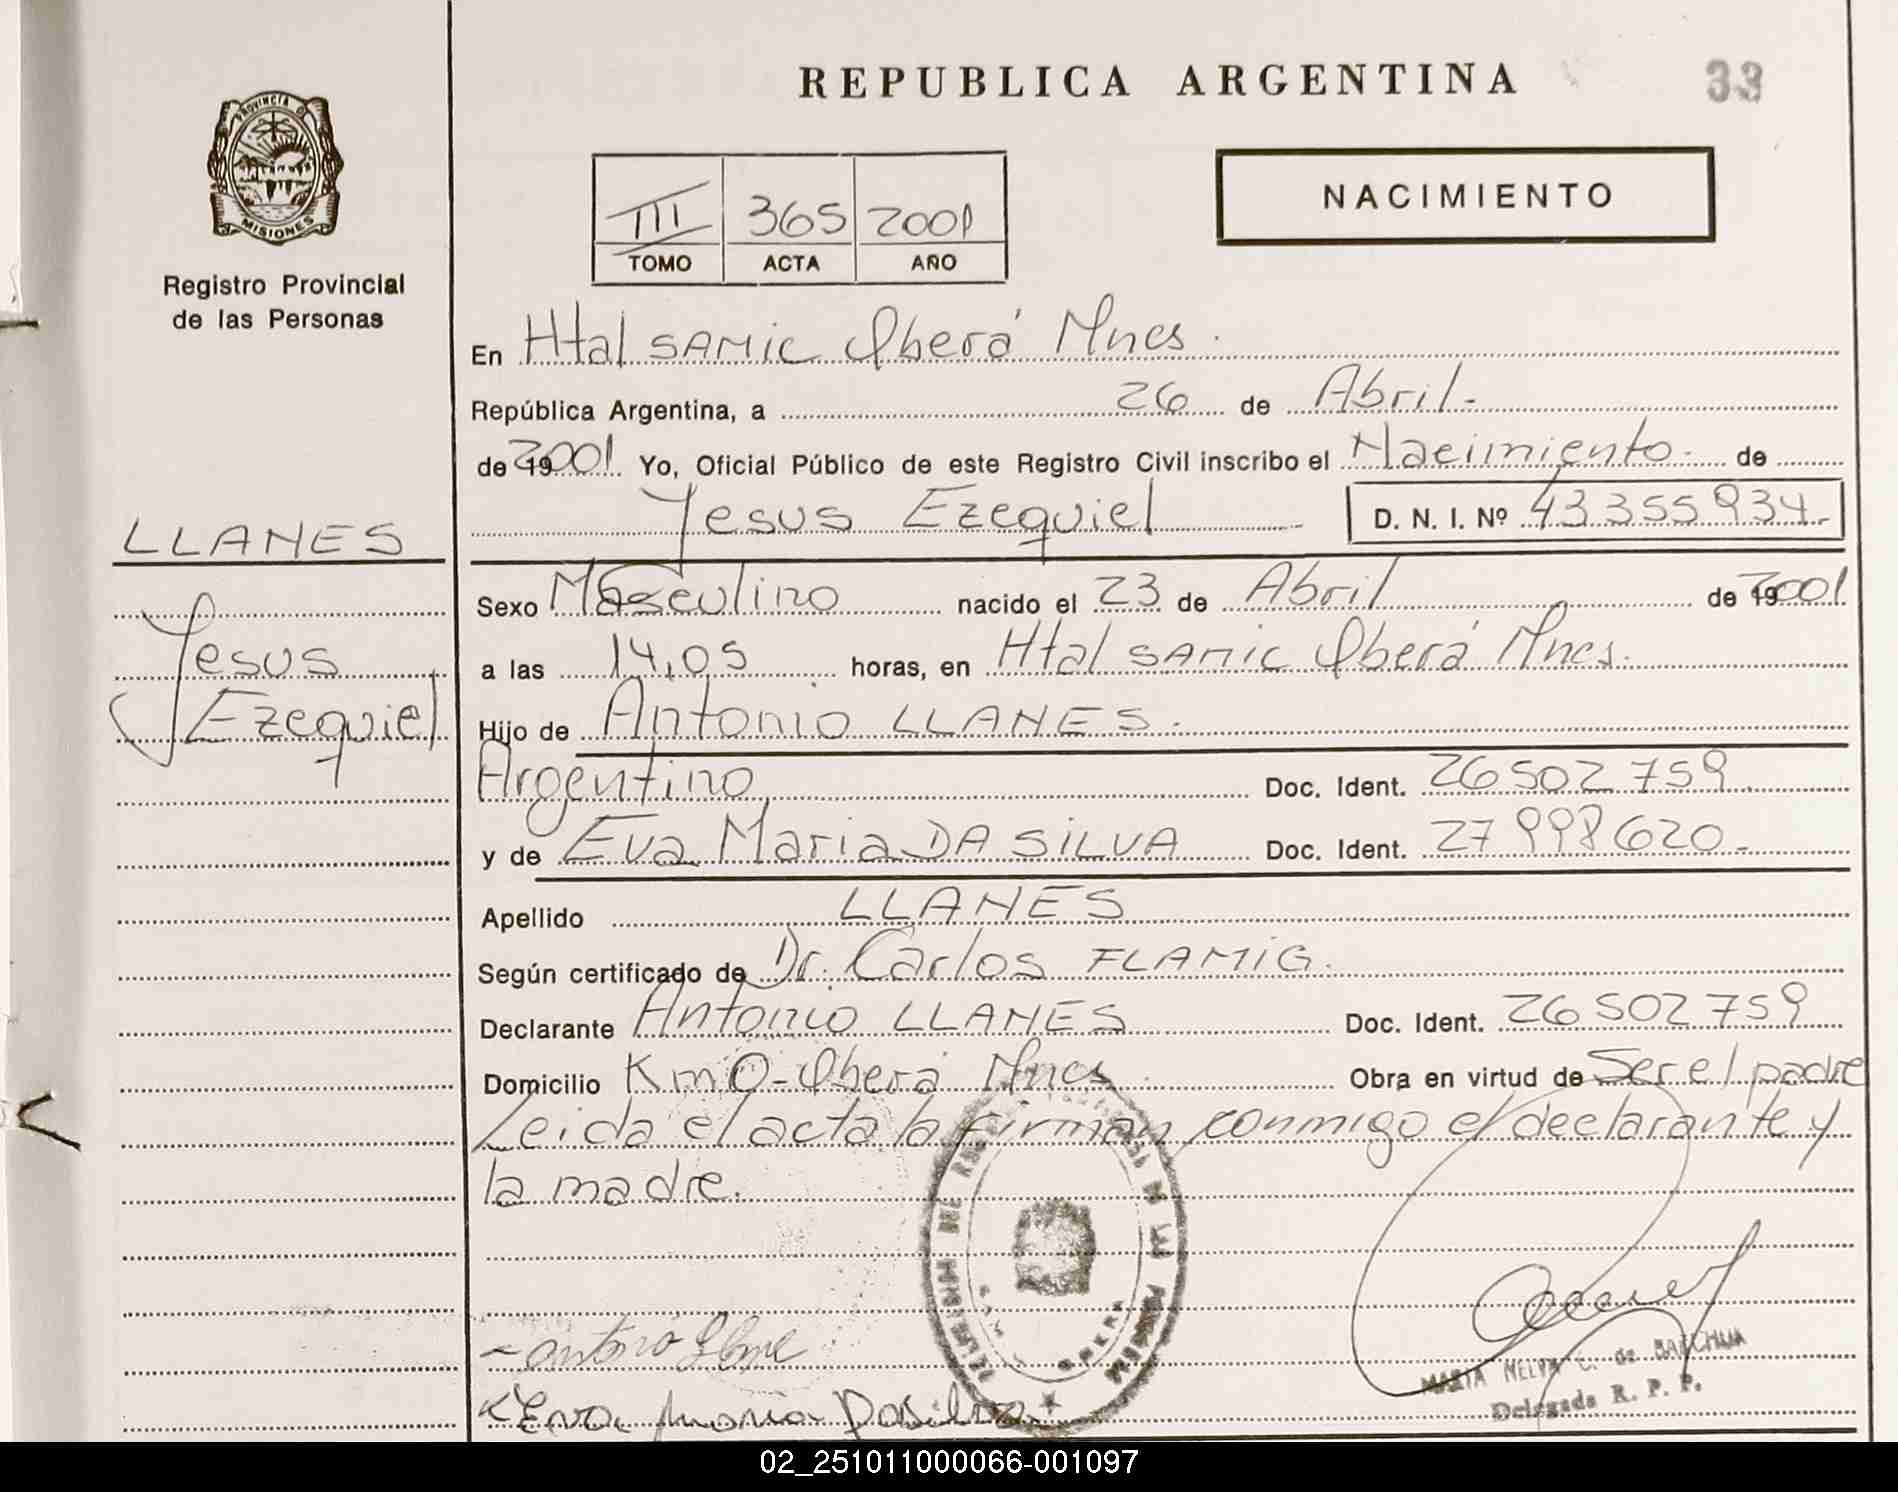 REPUBLICA ARGENTINA
33
PROVINCIA D
MISIONES
Registro Provincial
de las Personas
III 365 2001
TOMO ACTA AÑO
NACIMIENTO
En Htal SAMIC Oberá Mnes.
República Argentina, a 26 de Abril.
de 2001 Yo, Oficial Público de este Registro Civil inscribo el Nacimiento de
Jesus Ezequiel D. N. I. Nº 43355934
LLANES
Jesus
Ezequiel
Sexo Masculino nacido el 23 de Abril de 2001
a las 14,05 horas, en Htal SAMIC Oberá Mnes.
Hijo de Antonio LLANES.
Argentino Doc. Ident. 26502759
y de Eva Maria DA SILVA Doc. Ident. 27998620
Apellido LLANES
Según certificado de Dr. Carlos FLAMIG.
Declarante Antonio LLANES Doc. Ident. 26502759
Domicilio Km 0 - Oberá Mnes. Obra en virtud de Ser el padre
Leida el acta la firman conmigo el declarante y
la madre.
Eva Maria Dasilva
MARIA NELVA C. de
Delegada R. P. P.
02_251011000066-001097